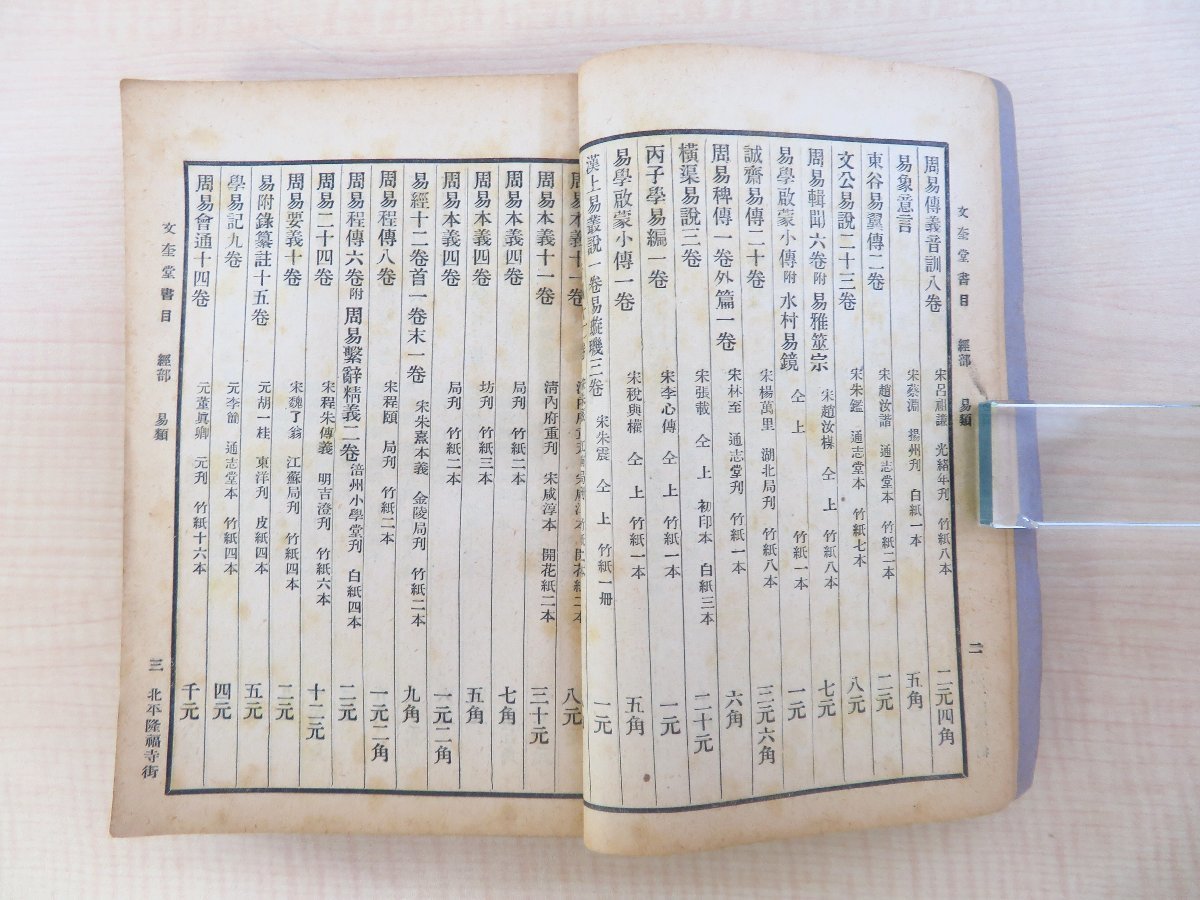 文奎堂書目 經部 易類 二
周易傳義音訓八卷 宋呂祖謙 光緒年刊 竹紙八本 二元四角
易象意言 宋蔡淵 揚州刊 白紙一本 五角
東谷易翼傳二卷 宋趙汝諧 通志堂本 竹紙二本 二元
文公易說二十三卷 宋朱鑑 通志堂本 竹紙七本 八元
周易輯聞六卷附易雅筮宗 宋趙汝楳 仝上 竹紙八本 七元
易學啟蒙小傳附水村易鏡 仝上 竹紙一本 一元
誠齋易傳二十卷 宋楊萬里 湖北局刊 竹紙八本 三元六角
周易稗傳一卷外篇一卷 宋林至 通志堂刊 竹紙一本 六角
橫渠易說三卷 宋張載 仝上 初印本 白紙三本 二十元
丙子學易編一卷 宋李心傳 仝上 竹紙一本 一元
易學啟蒙小傳一卷 宋稅與權 仝上 竹紙一本 五角
漢上易叢說一卷易璇璣三卷 宋朱震 仝上 竹紙一冊 一元
周易本義十一卷 八元
周易本義十一卷 清內府重刊 宋咸淳本 開花紙二本 三十元
周易本義四卷 局刊 竹紙二本 七角
周易本義四卷 坊刊 竹紙三本 五角
周易本義四卷 局刊 竹紙二本 一元二角
易經十二卷首一卷末一卷 宋朱熹本義 金陵局刊 竹紙二本 九角
周易程傳八卷 宋程頤 局刊 竹紙二本 一元二角
周易程傳六卷附周易繫辭精義二卷 涪州小學堂刊 白紙四本 二元
周易二十四卷 宋程朱傳義 明吉澄刊 竹紙六本 十二元
周易要義十卷 宋魏了翁 江蘇局刊 竹紙四本 二元
易附錄纂註十五卷 元胡一桂 東洋刊 皮紙四本 五元
學易記九卷 元李簡 通志堂本 竹紙四本 四元
周易會通十四卷 元董眞卿 元刊 竹紙十六本 千元
文奎堂書目 經部 易類 三 北平隆福寺街